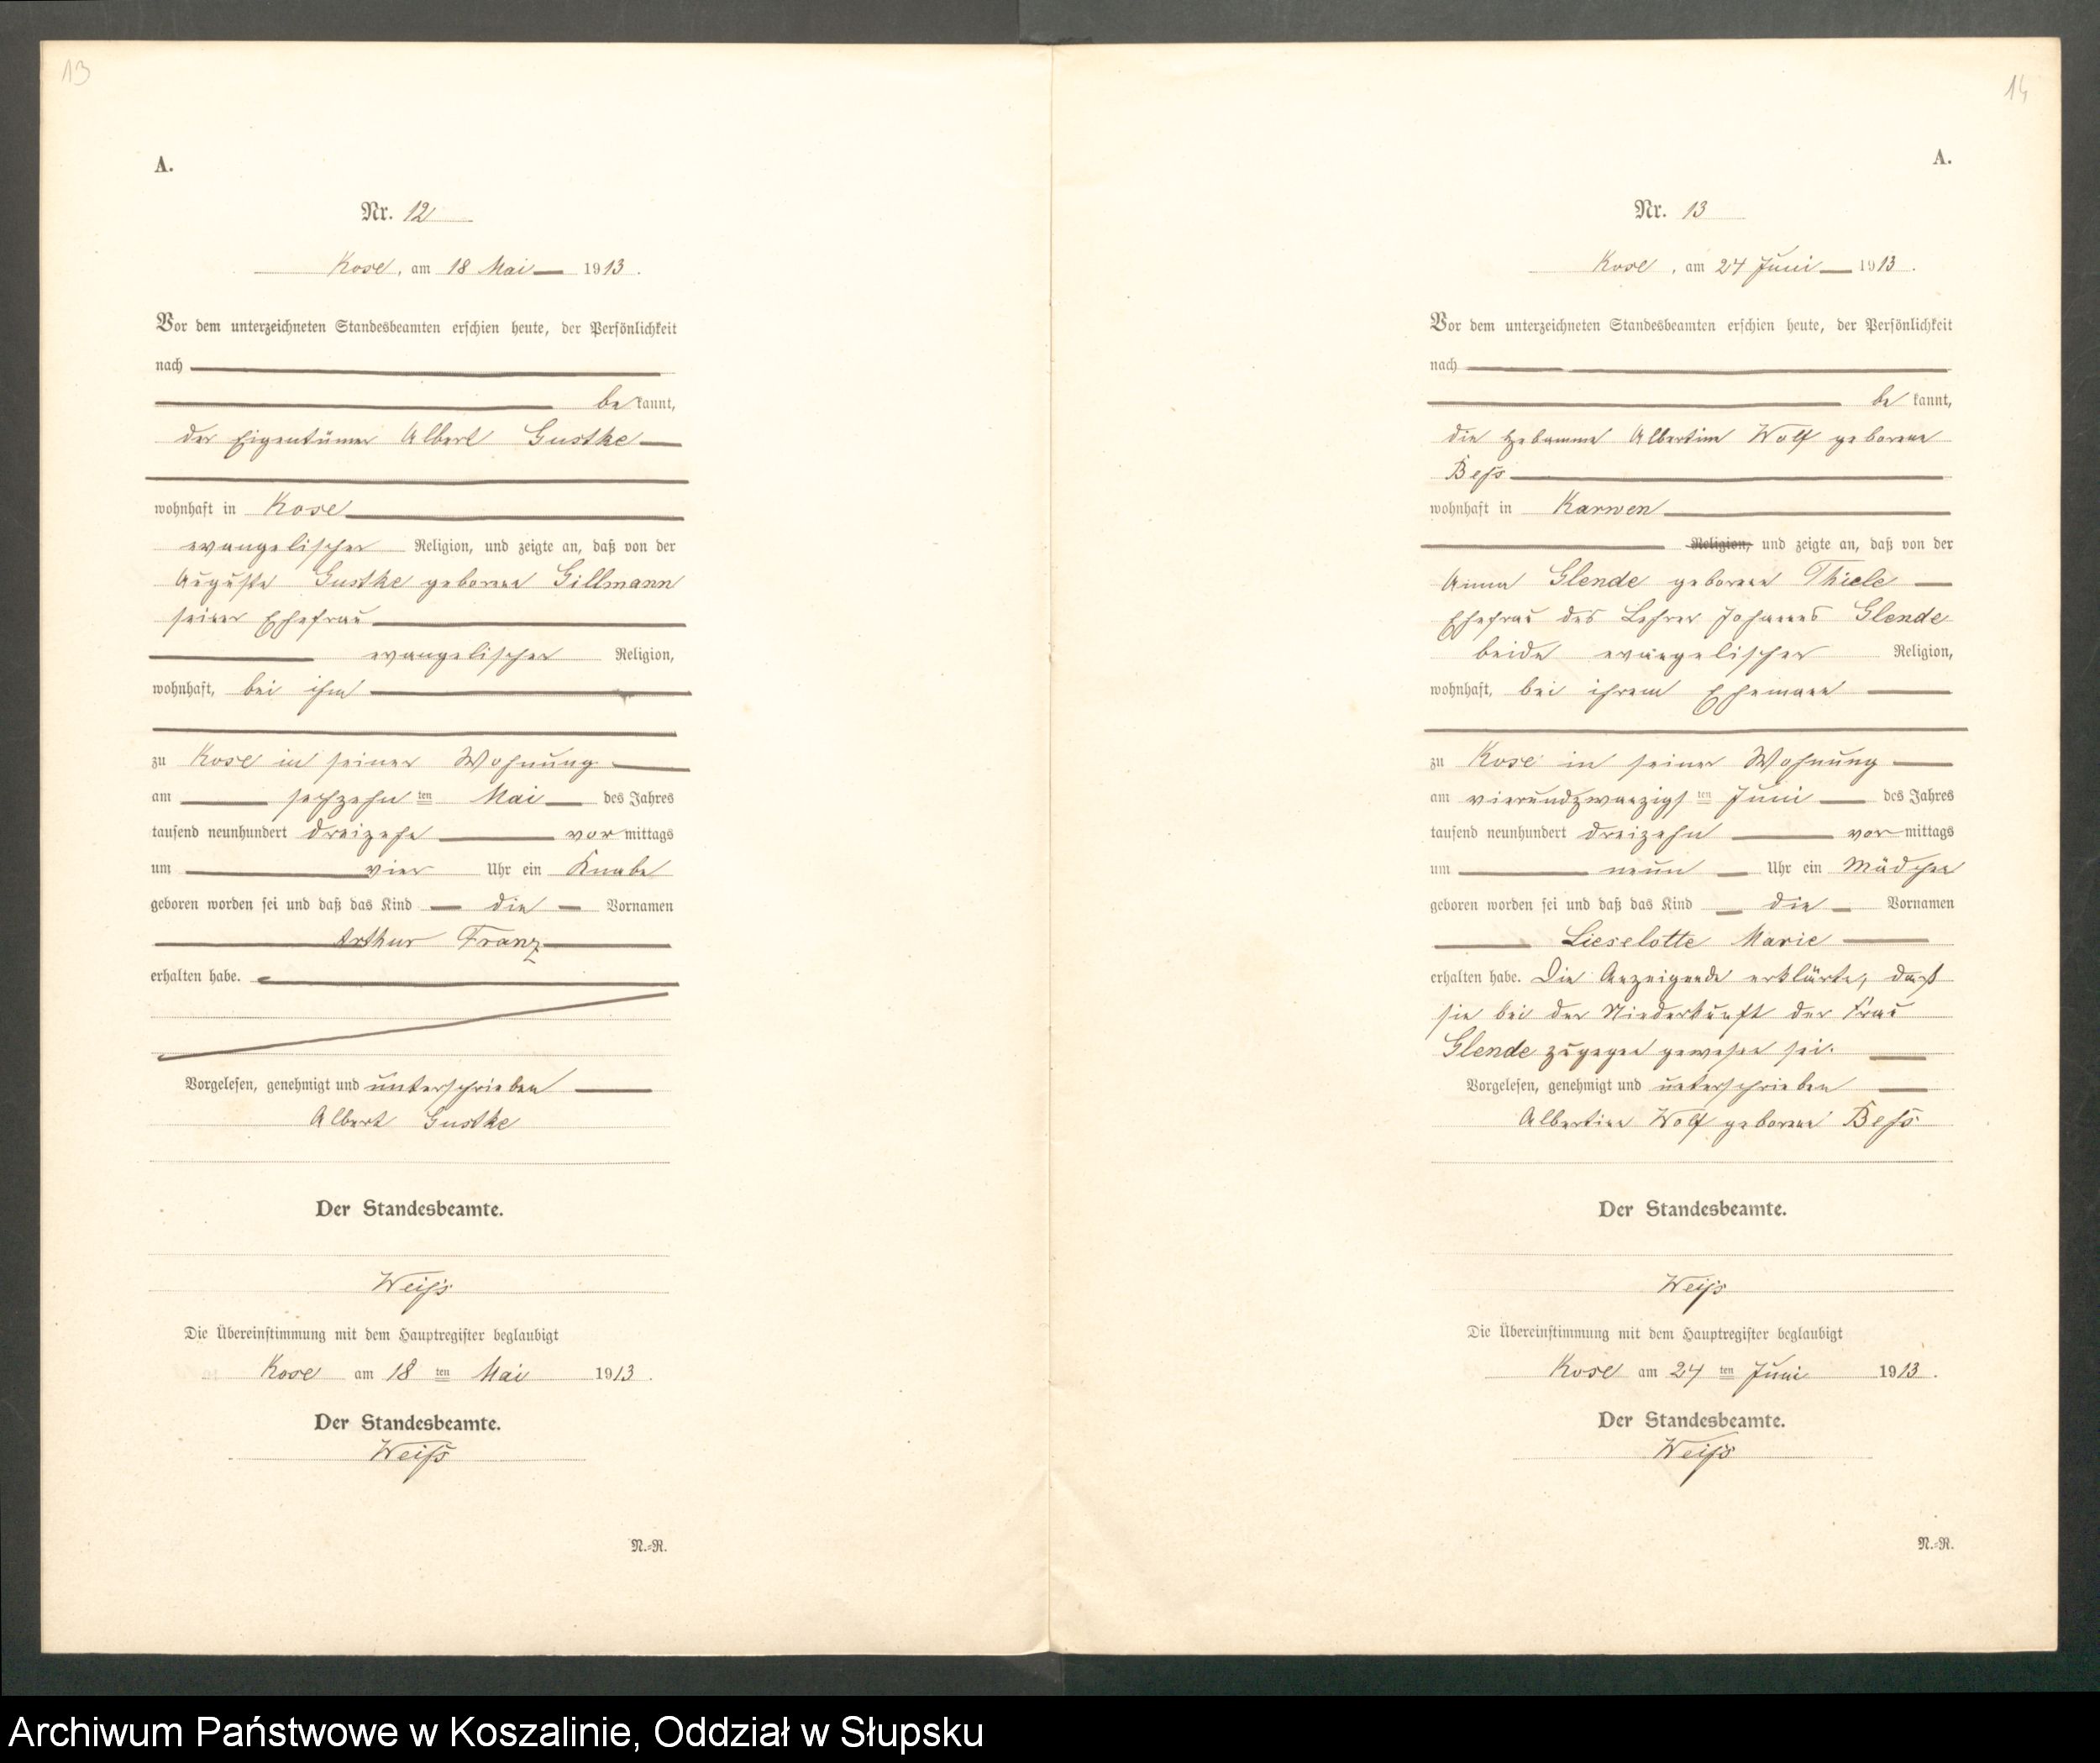 13
A.
Nr. 12
Kose, am 18 Mai 1913.
Vor dem unterzeichneten Standesbeamten erschien heute, der Persönlichkeit
nach
be kannt,
der Eigentümer Albert Gustke
wohnhaft in Kose
evangelischer Religion, und zeigte an, daß von der
Auguste Gustke geborene Gillmann
seiner Ehefrau
evangelischer Religion,
wohnhaft, bei ihm
zu Kose in seiner Wohnung
am sechzehn ten Mai des Jahres
tausend neunhundert dreizehn vor mittags
um vier Uhr ein Knabe
geboren worden sei und daß das Kind die Vornamen
Arthur Franz
erhalten habe.
Vorgelesen, genehmigt und unterschrieben
Albert Gustke
Der Standesbeamte.
Weiß
Die Übereinstimmung mit dem Hauptregister beglaubigt
Kose am 18 ten Mai 1913.
Der Standesbeamte.
Weiß
N.=R.
14
A.
Nr. 13
Kose, am 24 Juni 1913.
Vor dem unterzeichneten Standesbeamten erschien heute, der Persönlichkeit
nach
be kannt,
die Hebamme Albertine Wolf geborene
Beß
wohnhaft in Karwen
Religion, und zeigte an, daß von der
Anna Glende geborene Thiele
Ehefrau des Lehrer Johannes Glende
beide evangelischer Religion,
wohnhaft, bei ihrem Ehemann
zu Kose in seiner Wohnung
am vierundzwanzigs ten Juni des Jahres
tausend neunhundert dreizehn vor mittags
um neun Uhr ein Mädchen
geboren worden sei und daß das Kind die Vornamen
Lieselotte Marie
erhalten habe. Die Anzeigende erklärte, daß
sie bei der Niederkunft der Frau
Glende zugegen gewesen sei.
Vorgelesen, genehmigt und unterschrieben
Albertine Wolf geborene Beß
Der Standesbeamte.
Weiß
Die Übereinstimmung mit dem Hauptregister beglaubigt
Kose am 24 ten Juni 1913.
Der Standesbeamte.
Weiß
N.=R.
Archiwum Państwowe w Koszalinie, Oddział w Słupsku